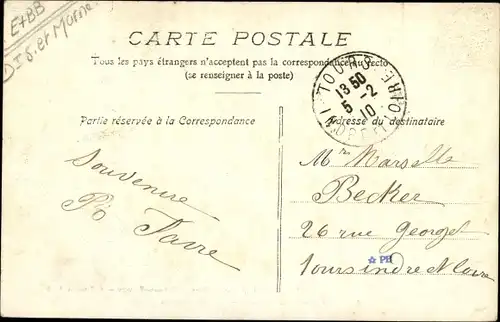 E+BB
D I S. et Morne
CARTE POSTALE
Tous les pays étrangers n'acceptent pas la correspondance au recto
(se renseigner à la poste)
TOURS
13 50
5 -2
10
INDRE ET LOIRE
Partie réservée à la Correspondance
Adresse du destinataire
Souvenire
R. Favre
Marselle
Becker
26 rue George
Tours indre & Loire
PH